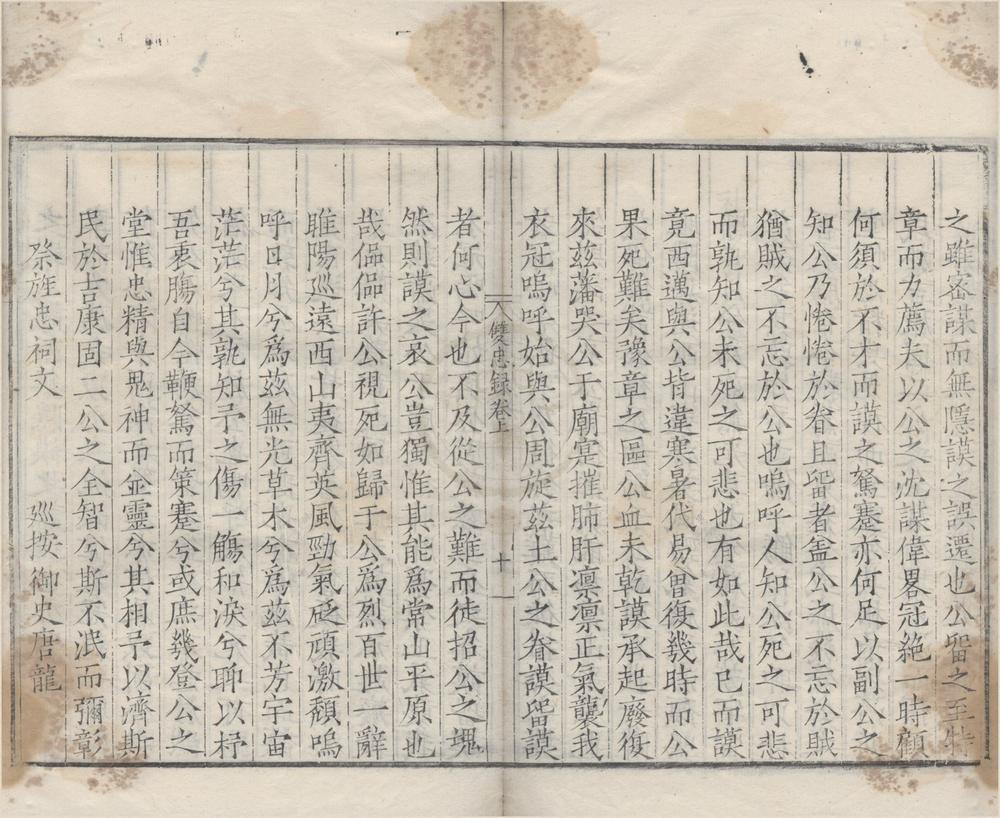 之雖密謀而無隱謨之誤遷也公留之至特
章而力薦夫以公之沈謀偉畧冠絶一時顧
何須於不才而謨之駑蹇亦何足以副公之
知公乃惓惓於眷且留者盖公之不忘於賊
猶賊之不忘於公也嗚呼人知公死之可悲
而孰知公未死之可悲也有如此哉已而謨
竟西邁與公背違寒暑代易曾復幾時而公
果死難矣豫章之區公血未乾謨承起廢復
來茲藩哭公于廟寔摧肺肝凛凛正氣襲我
衣冠嗚呼始與公周旋茲土公之眷謨留謨
雙忠録卷上
十一
者何心今也不及從公之難而徒招公之塊
然則謨之哀公豈獨惟其能為常山平原也
哉偘偘許公視死如歸于公為烈百世一辭
睢陽巡遠西山夷齊英風勁氣砭頑激頹嗚
呼日月兮為茲無光草木兮為茲不芳宇宙
茫茫兮其孰知予之傷一觴和淚兮聊以抒
吾衷膓自今鞭駑而策蹇兮或庶幾登公之
堂惟忠精與鬼神而並靈兮其相予以濟斯
民於吉康固二公之全智兮斯不泯而彌彰
祭旌忠祠文 巡按御史唐龍